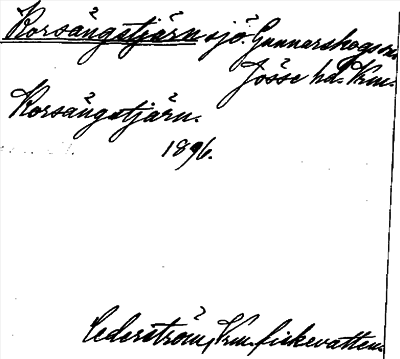 Korsängstjärn sjö. Gunnarskogs sn.
Jösse hd. Vrm.
Korsängstjärn.
1896.
Cederström, Vrm. fiskevatten.